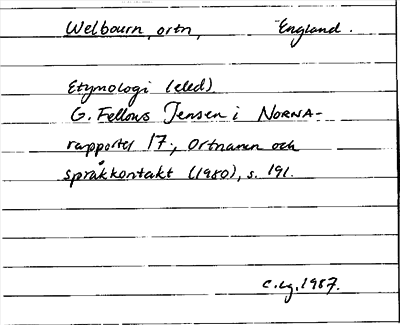 Welbourn, ortn, England.
Etymologi (eled)
G. Fellows Jensen i NORNA-
rapporter 17, Ortnamn och
språkkontakt (1980), s. 191.
C.Lg. 1987.